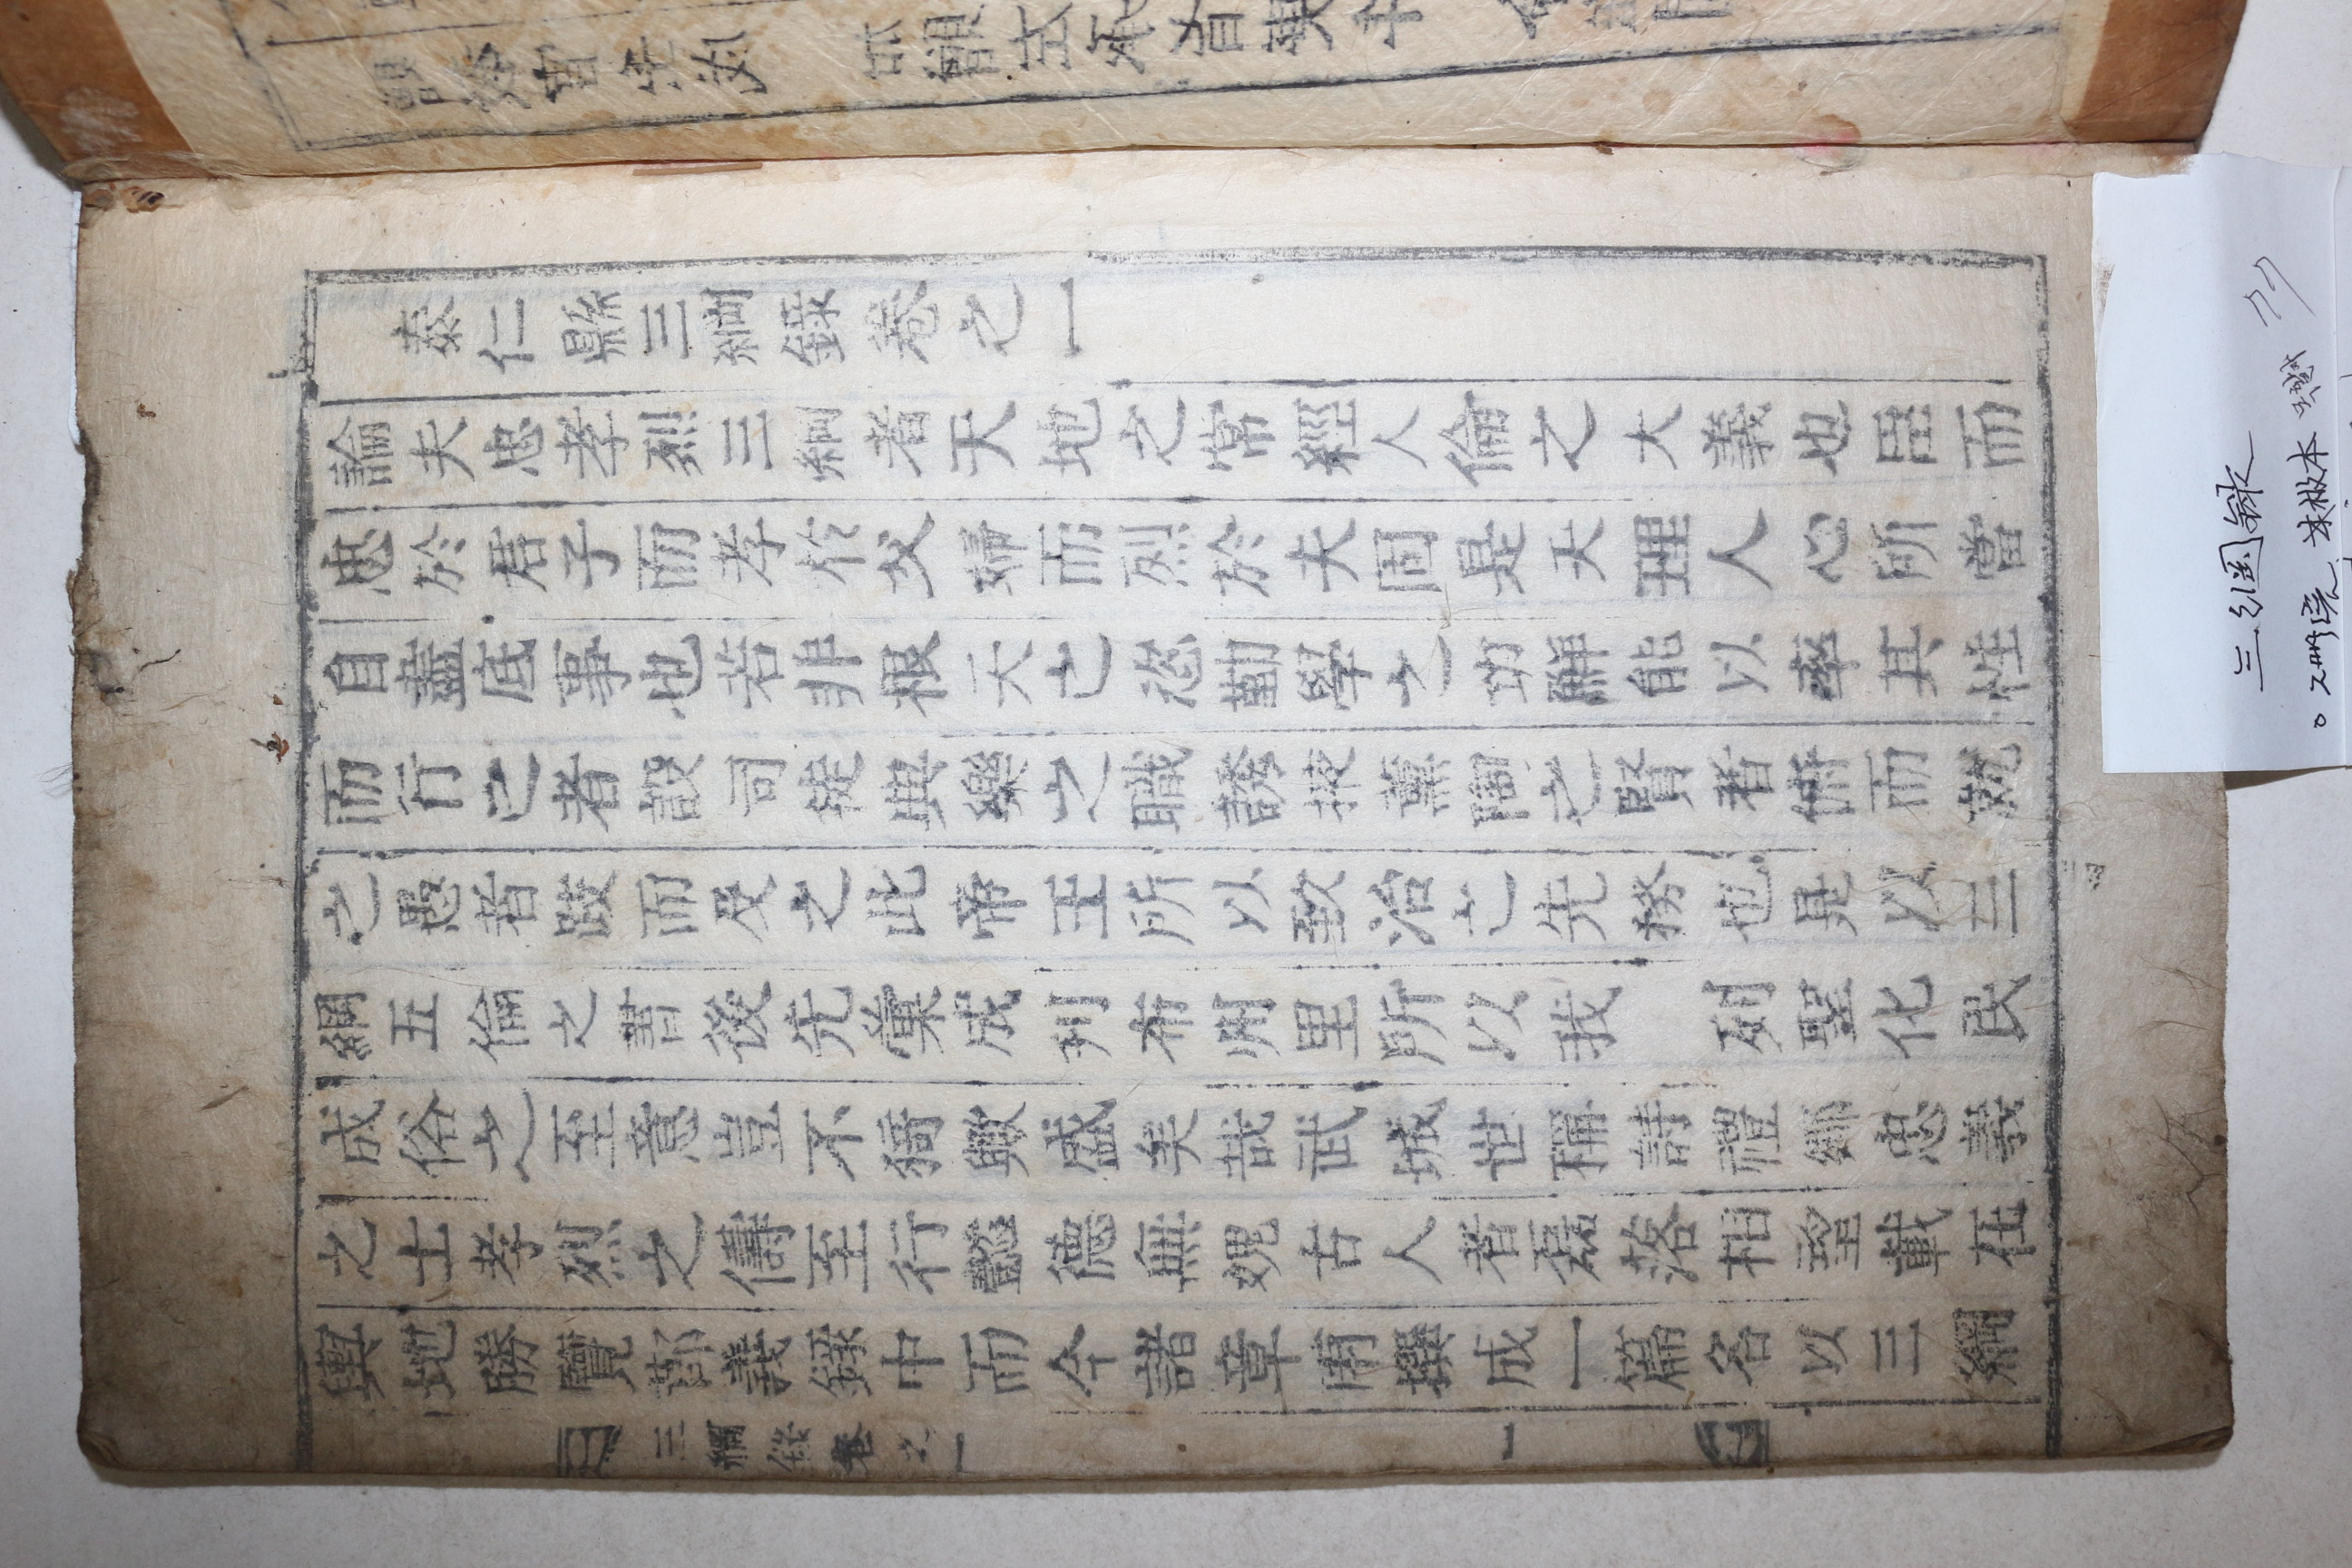 泰仁縣三綱錄卷之一
論夫忠孝烈三綱者天地之常經人倫之大義也臣而
忠於君子而孝於父婦而烈於夫固是天理人心所當
自盡底事也若非根天之慾勸學之功鮮能以率其性
而行之者設司徒典樂之職誘掖薰陶之賢者俯而就
之愚者跂而及之此帝王所以致治之先務也是以三
綱五倫之書後先彙成刊布州里所以我 列聖化民
成俗之至意豈不猗歟盛矣哉武城世稱詩禮鄕忠義
之士孝烈之儔至行懿德無愧古人者磊落相望載在
輿地勝覽節義錄中而今諸章甫撰成一篇名以三綱
三綱錄卷之一 一
三綱錄